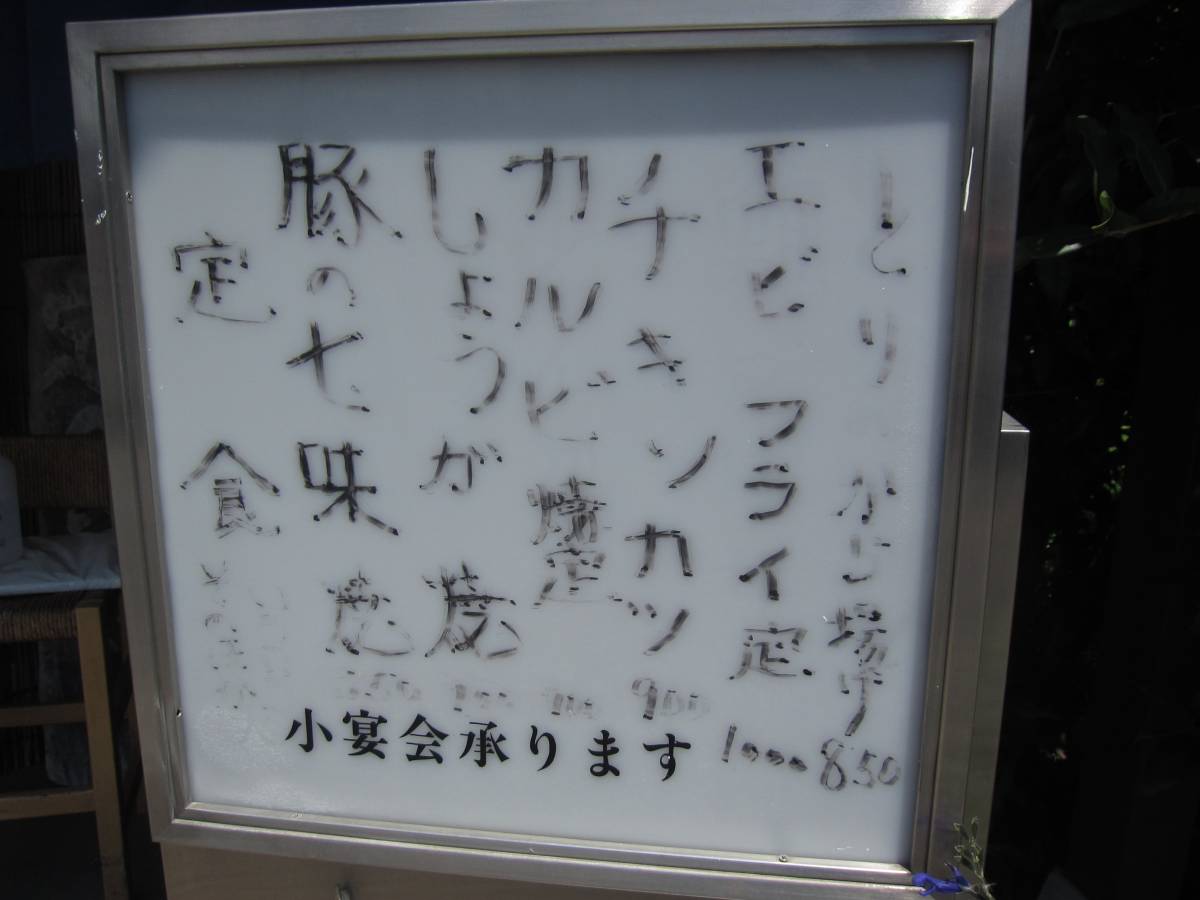 とり から揚げ 850
エビフライ定 1000
チキンカツ 900
カルビ焼定
しょうが焼
豚の七味焼
定食
小宴会承ります